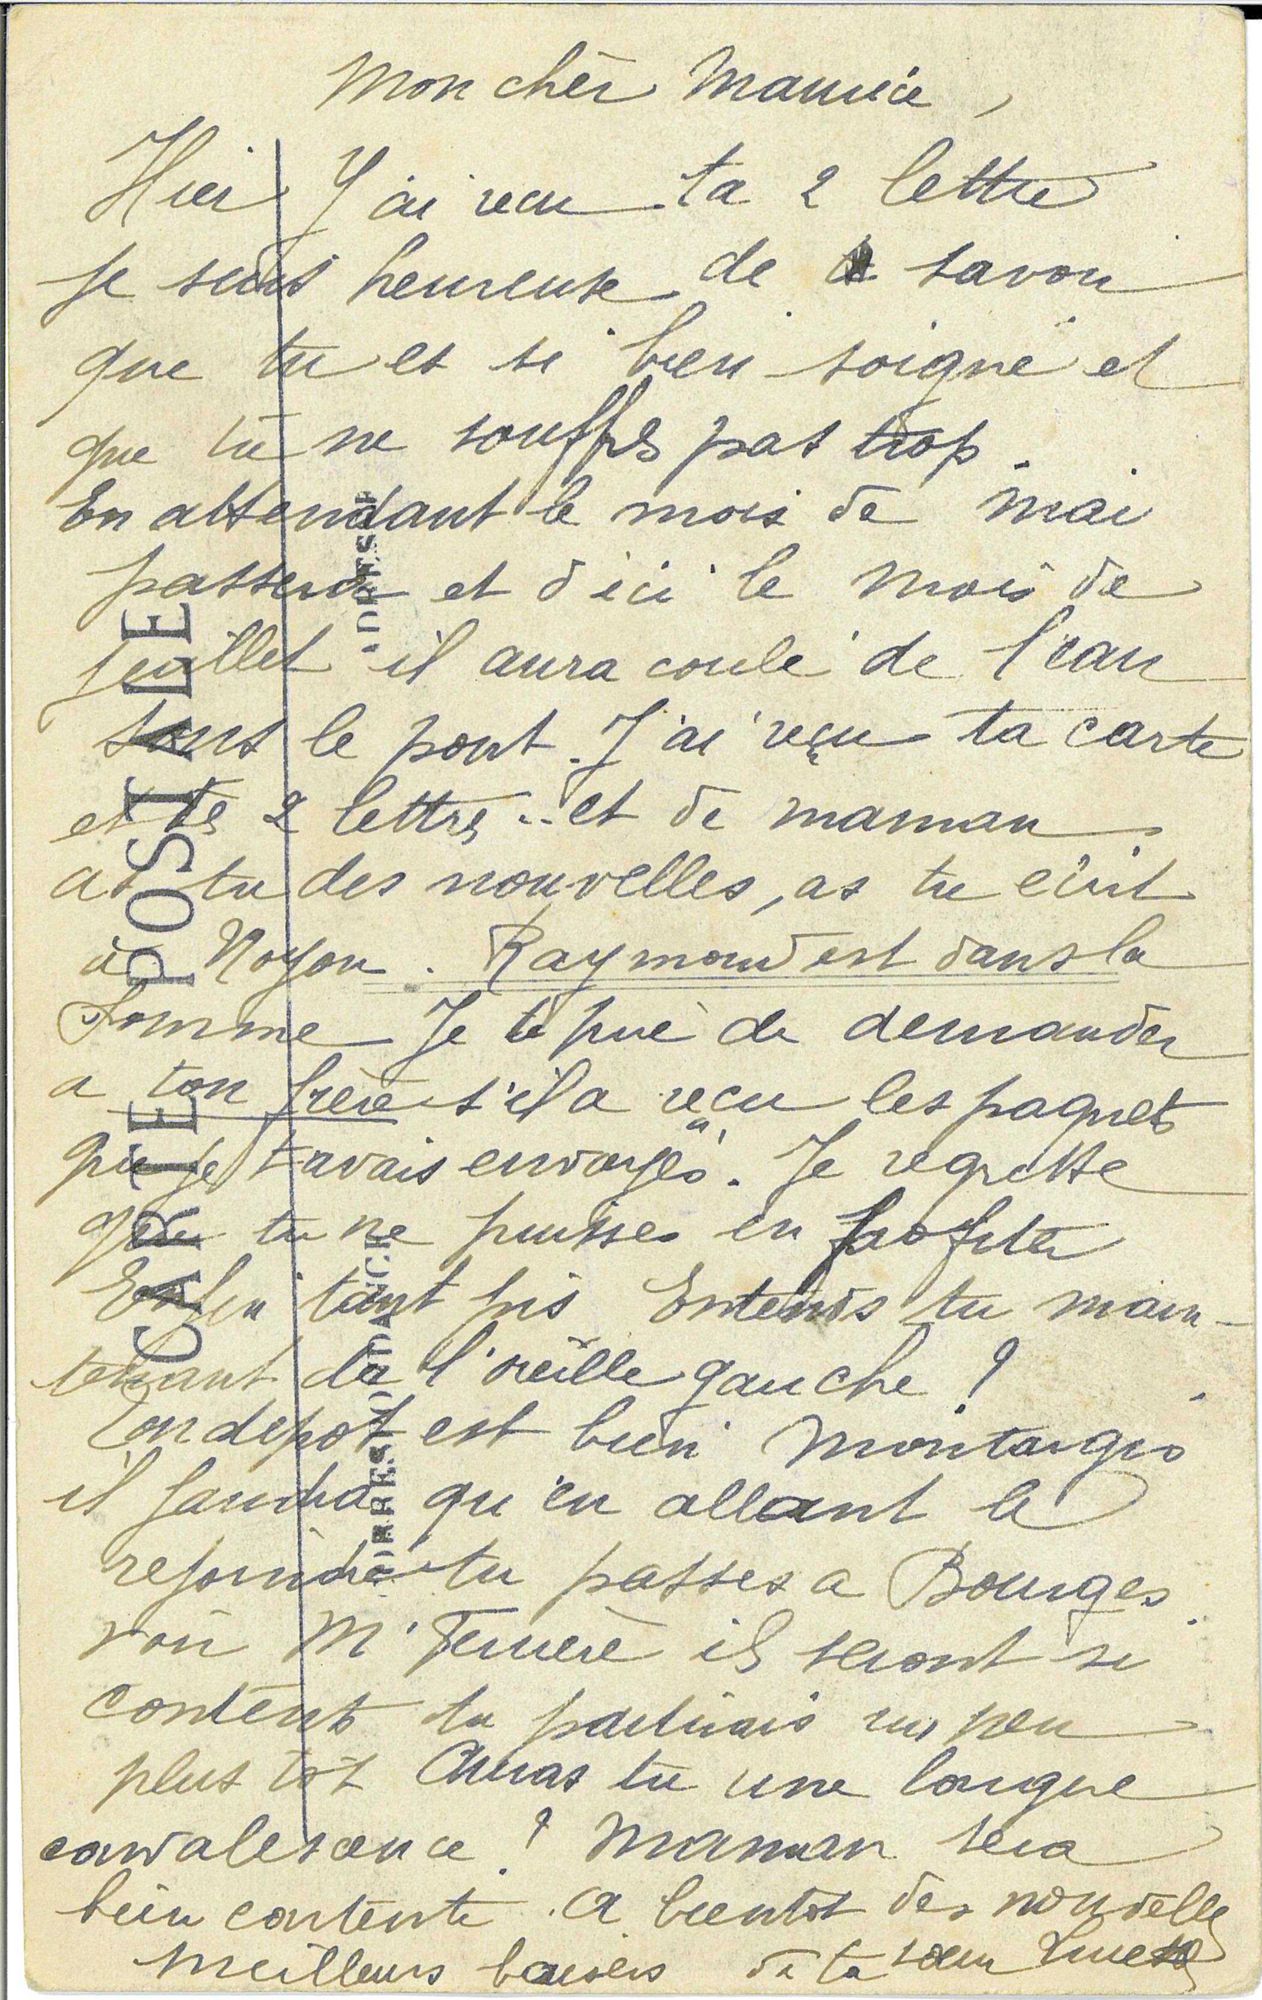 Mon cher Maurice,
Hier J'ai recu ta 2 lettre
Je suis heureuse de savoir
que tu es si bien soigné et
que tu ne souffres pas trop.
En attendant le mois de mai
passera et d'ici le mois de
Juillet il aura coulé de l'eau
sous le pont. J'ai reçu ta carte
et tes 2 lettres.. et de maman
as tu des nouvelles, as tu écrit
à Noyon. Raymond est dans la
Somme Je te prie de demander
a ton frère s'il a reçu les paquets
que je t'avais envoyés. Je regrette
que tu ne puisses en profiter
Enfin tant pis Entends tu main-
tenant de l'oreille gauche ?
Ton depot est bien Montargis
il faudra qu'en allant le
rejoindre tu passes a Bourges
voir M. Ferrère ils seront si
contents tu partirais un peu
plus tôt Auras tu une longue
convalescence ? Maman sera
bien contente. A bientot des nouvelles
Meilleurs baisers de ta soeur
CARTE POSTALE
CORRESPONDANCE
ADRESSE